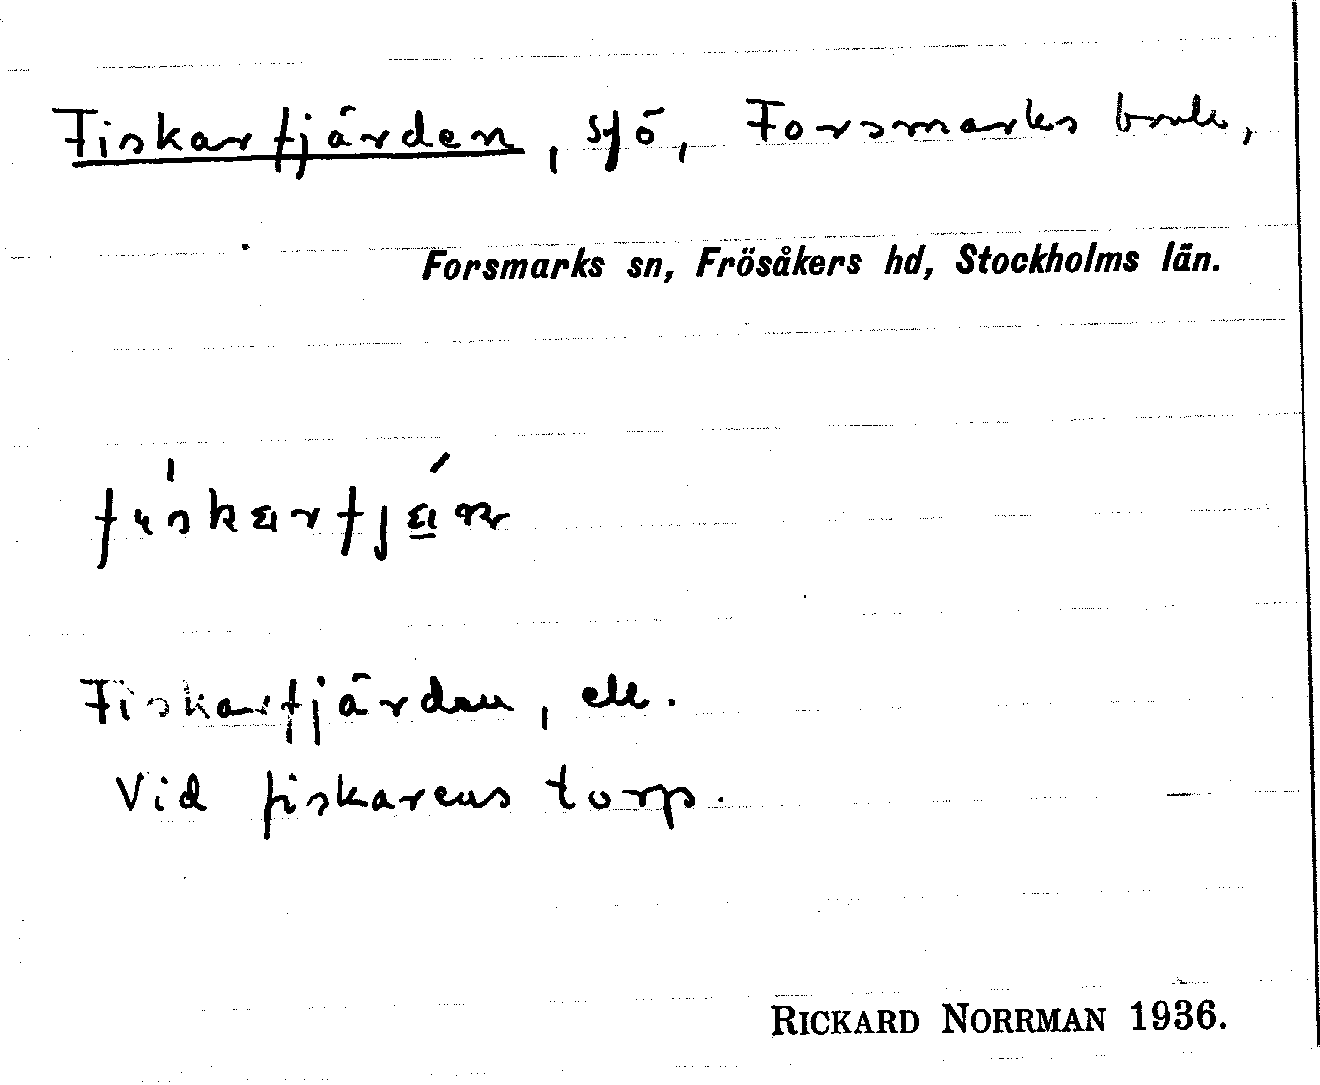 Fiskarfjärden, sjö, Forsmarks bruk,
Forsmarks sn, Frösåkers hd, Stockholms län.
Fiskarfjärden, ek.
Vid fiskarens torp.
RICKARD NORRMAN 1936.